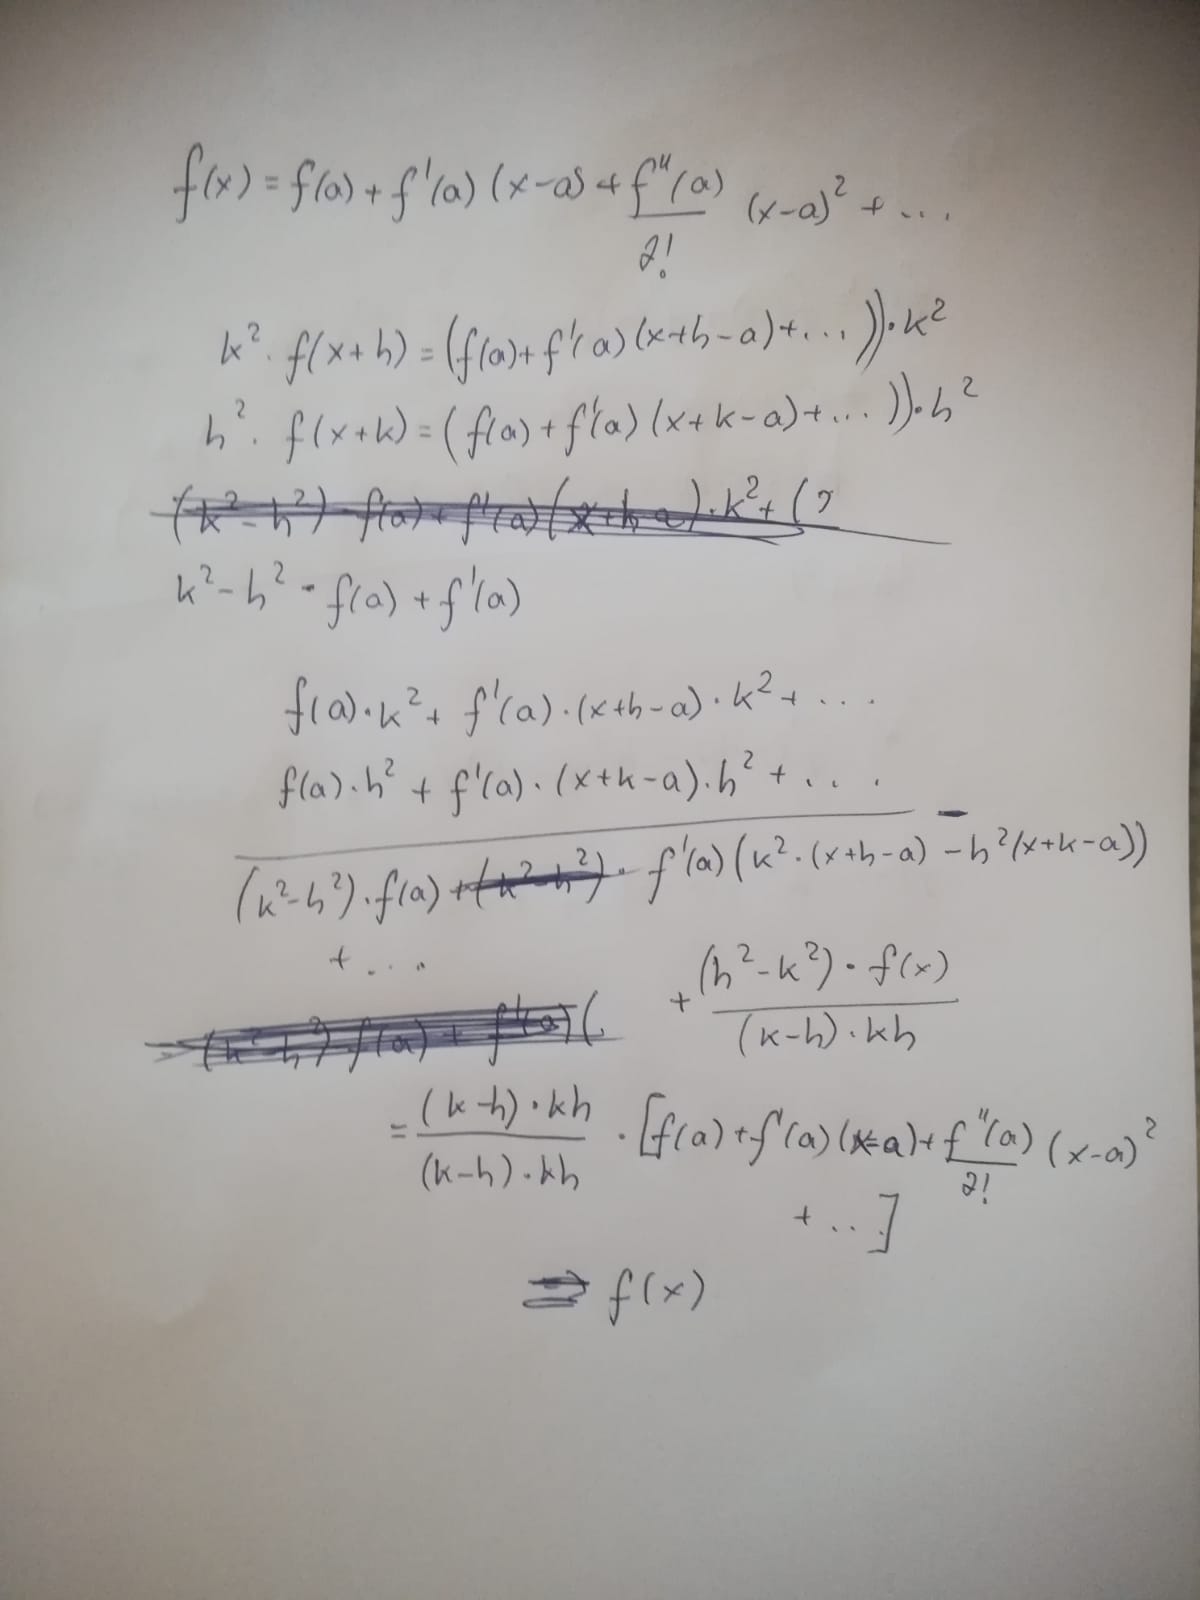 f(x) = f(a) + f'(a) (x-a) + f''(a)/2! (x-a)² + ...
k² · f(x+h) = (f(a) + f'(a) (x+h-a) + ... )) · k²
h² · f(x+k) = (f(a) + f'(a) (x+k-a) + ... )) · h²
(k² - h²) f(a) + f'(a) (x+h-a) · k² + (
k² - h² - f(a) + f'(a)
f(a) · k² + f'(a) · (x+h-a) · k² + ...
f(a) · h² + f'(a) · (x+k-a) · h² + ...
-
(k²-h²) · f(a) + (k²-h²) · f'(a) (k² · (x+h-a) - h² (x+k-a))
+ ...
+ (h²-k²) · f(x) / (k-h) · kh
(k²-h²) f(a) + f'(a) (
= (k-h) · kh / (k-h) · kh · [f(a) + f'(a) (x-a) + f''(a)/2! (x-a)²
+ ...]
⇒ f(x)